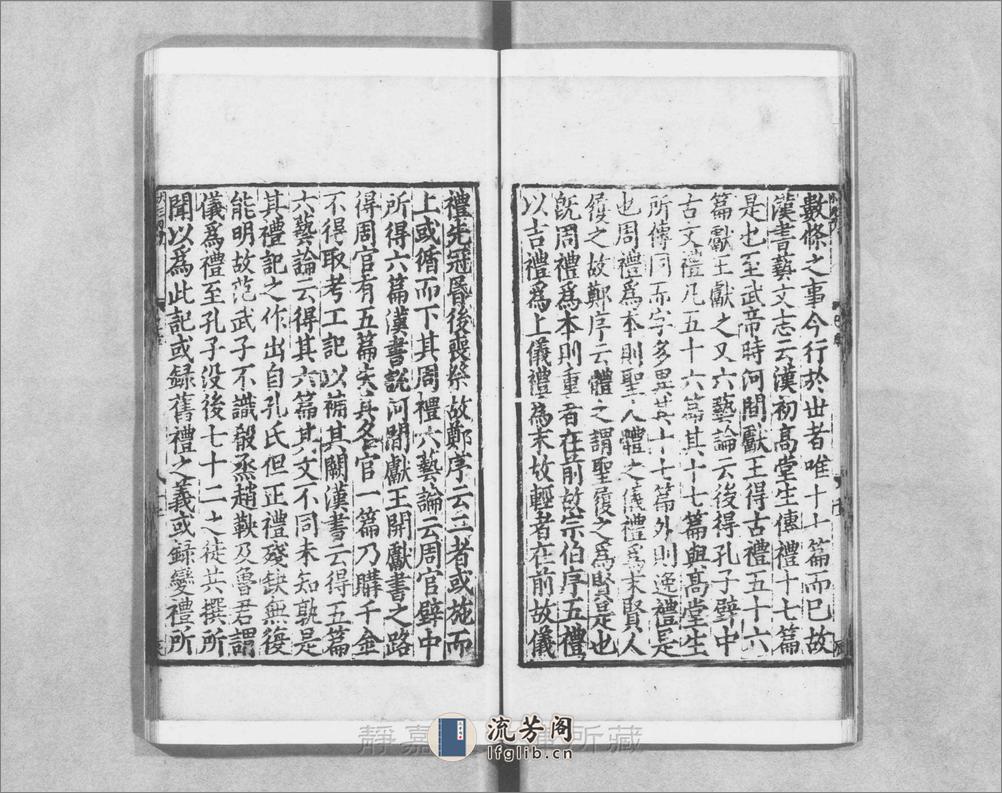 數條之事今行於世者唯十七篇而已故
漢書藝文志云漢初高堂生傳禮十七篇
是也至武帝時河間獻王得古禮五十六
篇獻王獻之又六藝論云後得孔子壁中
古文禮凡五十六篇其十七篇與高堂生
所傳同而字多異其十七篇外則逸禮是
也周禮爲本則聖人體之儀禮爲末賢人
履之故鄭序云體之謂聖履之爲賢是也
旣周禮爲本則重者在前故宗伯序五禮
以吉禮爲上儀禮爲末故輕者在前故儀
禮先冠昬後喪祭故鄭序云二者或施而
上或循而下其周禮六藝論云周官壁中
所得六篇漢書説河間獻王開獻書之路
得周官有五篇失其冬官一篇乃購千金
不得取考工記以補其闕漢書云得五篇
六藝論云得其六篇其文不同未知孰是
其禮記之作出自孔氏但正禮殘缺無復
能明故范武子不識殽烝趙鞅及魯君謂
儀爲禮至孔子没後七十二之徒共撰所
聞以爲此記或録舊禮之義或録變禮所
靜嘉 所藏
流芳阁
lfglib.cn